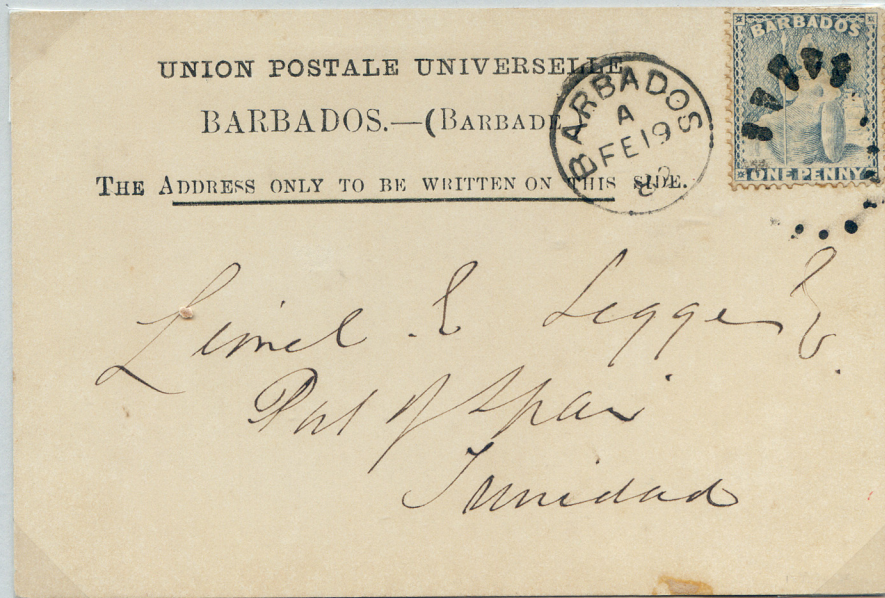 UNION POSTALE UNIVERSELLE
BARBADOS.—(BARBADE
THE ADDRESS ONLY TO BE WRITTEN ON THIS SIDE.
BARBADOS
A
FE 19
BARBADOS
ONE PENNY
Lionel E Legge
Port of Spain
Trinidad